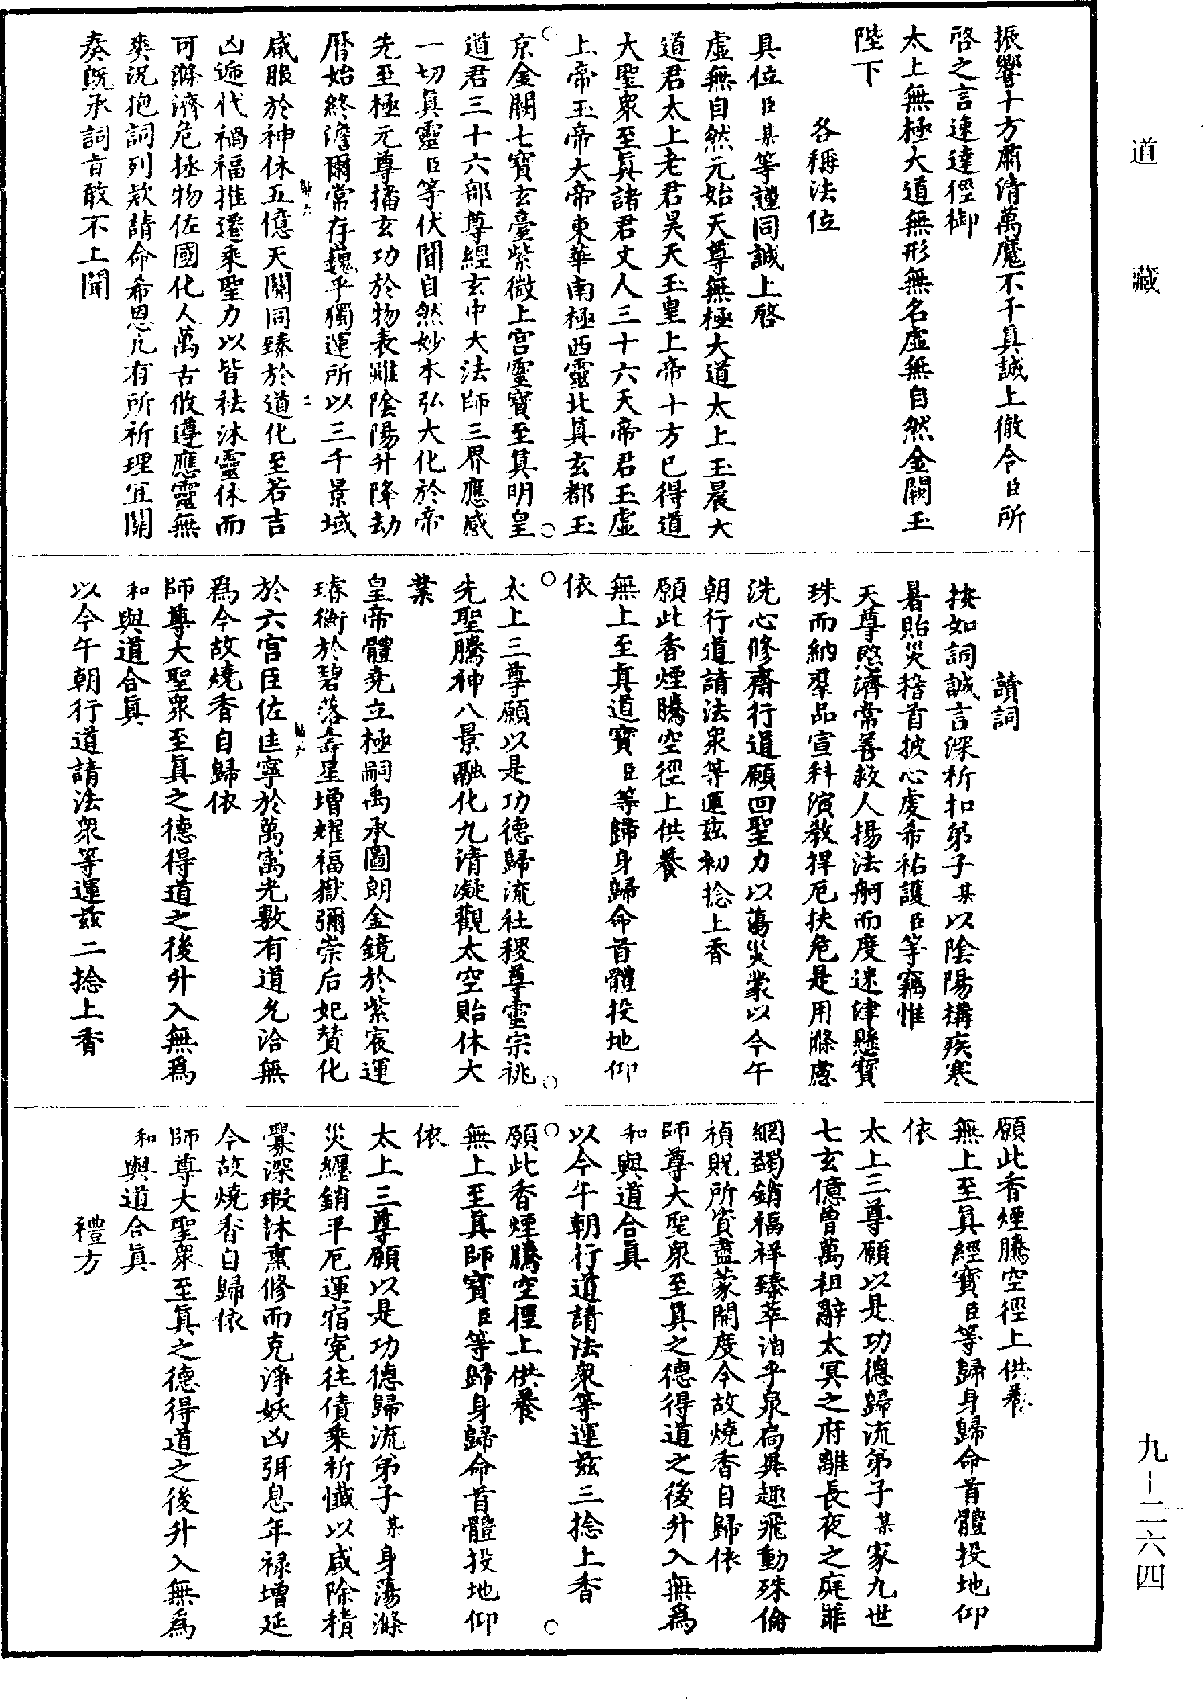 道藏
振響十方肅清萬魔不干真誠上徹令臣所
啓之言速達徑御
太上無極大道無形無名虛無自然金闕玉
陛下
各稱法位
具位臣某等謹同誠上啓
虛無自然元始天尊無極大道太上玉晨大
道君太上老君昊天玉皇上帝十方已得道
大聖衆至真諸君丈人三十六天帝君玉虛
上帝玉帝大帝東華南極西靈北真玄都玉
京金闕七寶玄臺紫微上宮靈寶至真明皇
道君三十六部尊經玄中大法師三界應感
一切真靈臣等伏聞自然妙本弘大化於帝
先至極元尊播玄功於物表雖陰陽升降劫
曆始終澹爾常存巍乎獨運所以三千景域
咸服於神休五億天關同臻於道化至若吉
凶遞代禍福推遷乘聖力以皆祛沐靈休而
可滌濟危拯物佐國化人萬古攸遵應靈無
爽況抱詞列欵請命希恩凡有所祈理宜關
奏既承詞旨敢不上聞
讀詞
按如詞誠言深祈扣弟子某以陰陽構疾寒
暑貽災稽首披心虔希祐護臣等竊惟
天尊愍濟常善救人揚法舸而度迷津懸寶
珠而納羣品宣科演教捍厄扶危是用滌慮
洗心修齋行道願回聖力以蕩災衰以今午
朝行道請法衆等運茲初捻上香
願此香煙騰空徑上供養
無上至真道寶臣等歸身歸命首體投地仰
依
太上三尊願以是功德歸流社稷尊靈宗祧
先聖騰神八景融化九清凝觀太空貽休大
業
皇帝體堯立極嗣禹承圖朗金鏡於紫宸運
璿衡於碧落壽星增耀福嶽彌崇后妃贊化
於六宮臣佐匡寧於萬寓光敷有道允洽無
爲今故燒香自歸依
師尊大聖衆至真之德得道之後升入無爲
和與道合真
以今午朝行道請法衆等運茲二捻上香
願此香煙騰空徑上供養
無上至真經寶臣等歸身歸命首體投地仰
依
太上三尊願以是功德歸流弟子某家九世
七玄億曾萬祖辭太冥之府離長夜之庭罪
網蠲銷福祥臻萃洎乎泉扃異趣飛動殊倫
禎貺所資盡蒙開度今故燒香自歸依
師尊大聖衆至真之德得道之後升入無爲
和與道合真
以今午朝行道請法衆等運茲三捻上香
願此香煙騰空徑上供養
無上至真師寶臣等歸身歸命首體投地仰
依
太上三尊願以是功德歸流弟子某身蕩滌
災纏銷平厄運宿冤往債乘祈懺以咸除積
釁深瑕沐熏修而克淨妖凶弭息年祿增延
今故燒香自歸依
師尊大聖衆至真之德得道之後升入無爲
和與道合真
禮方
九-二六四